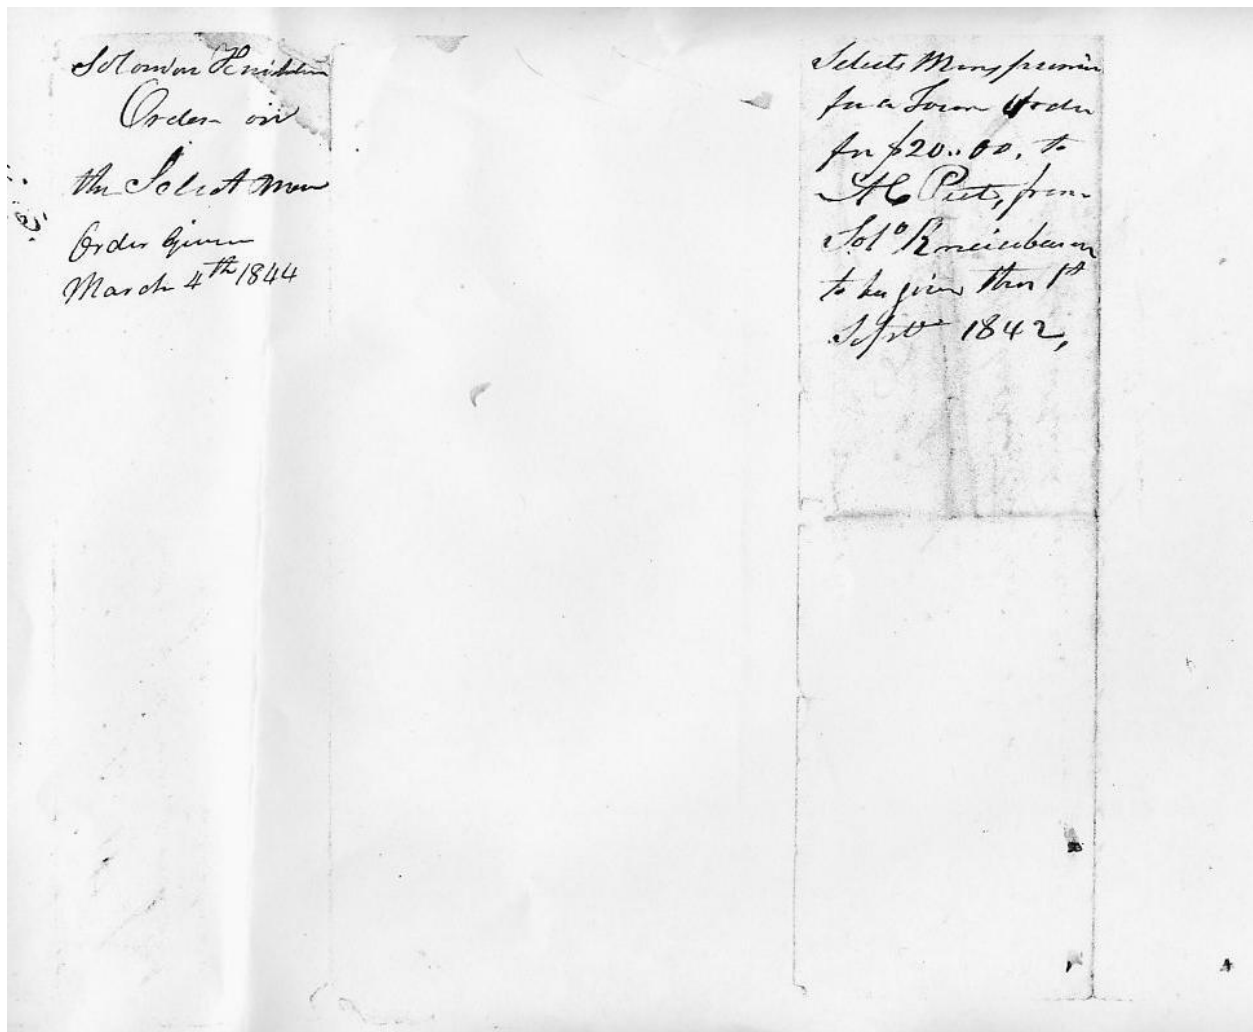 Solomon
Order on
the Select Men
Order Given
March 4th 1844
Selects Mens
for a Town Order
for $20..00, to
A C Peets, from
Solo Kneicebacon
to be given the 1st
Sept 1842,